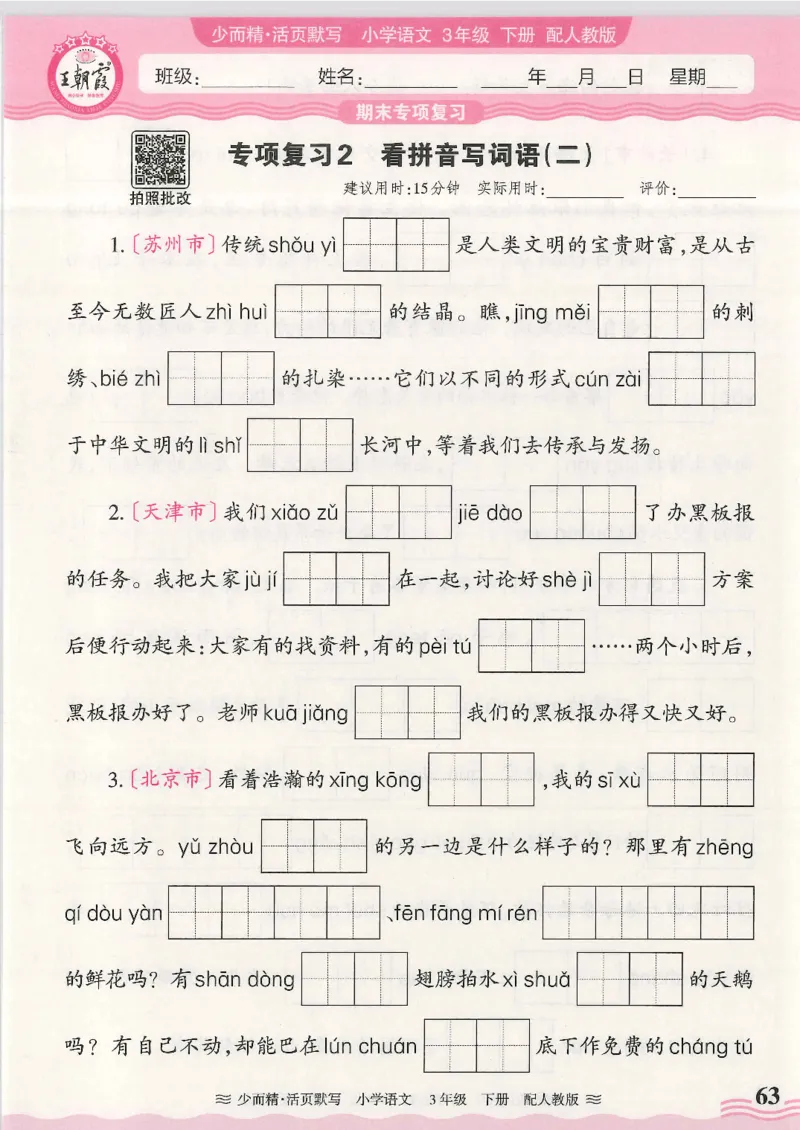 少而精·活页默写 小学语文 3年级 下册 配人教版
王朝霞
班级: 姓名: 年 月 日 星期
期末专项复习
拍照批改
专项复习2 看拼音写词语(二)
建议用时:15分钟 实际用时: 评价:
1.〔苏州市〕传统shǒu yì 是人类文明的宝贵财富,是从古
至今无数匠人zhì huì 的结晶。瞧,jīng měi 的刺
绣、bié zhì 的扎染……它们以不同的形式cún zài
于中华文明的lì shǐ 长河中,等着我们去传承与发扬。
2.〔天津市〕我们xiǎo zǔ jiē dào 了办黑板报
的任务。我把大家jù jí 在一起,讨论好shè jì 方案
后便行动起来:大家有的找资料,有的pèi tú ……两个小时后,
黑板报办好了。老师kuā jiǎng 我们的黑板报办得又快又好。
3.〔北京市〕看着浩瀚的xīng kōng ,我的sī xù
飞向远方。yǔ zhòu 的另一边是什么样子的?那里有zhēng
qí dòu yàn 、fēn fāng mí rén
的鲜花吗?有shān dòng 翅膀拍水xì shuǎ 的天鹅
吗?有自己不动,却能巴在lún chuán 底下作免费的cháng tú
少而精·活页默写 小学语文 3年级 下册 配人教版
63